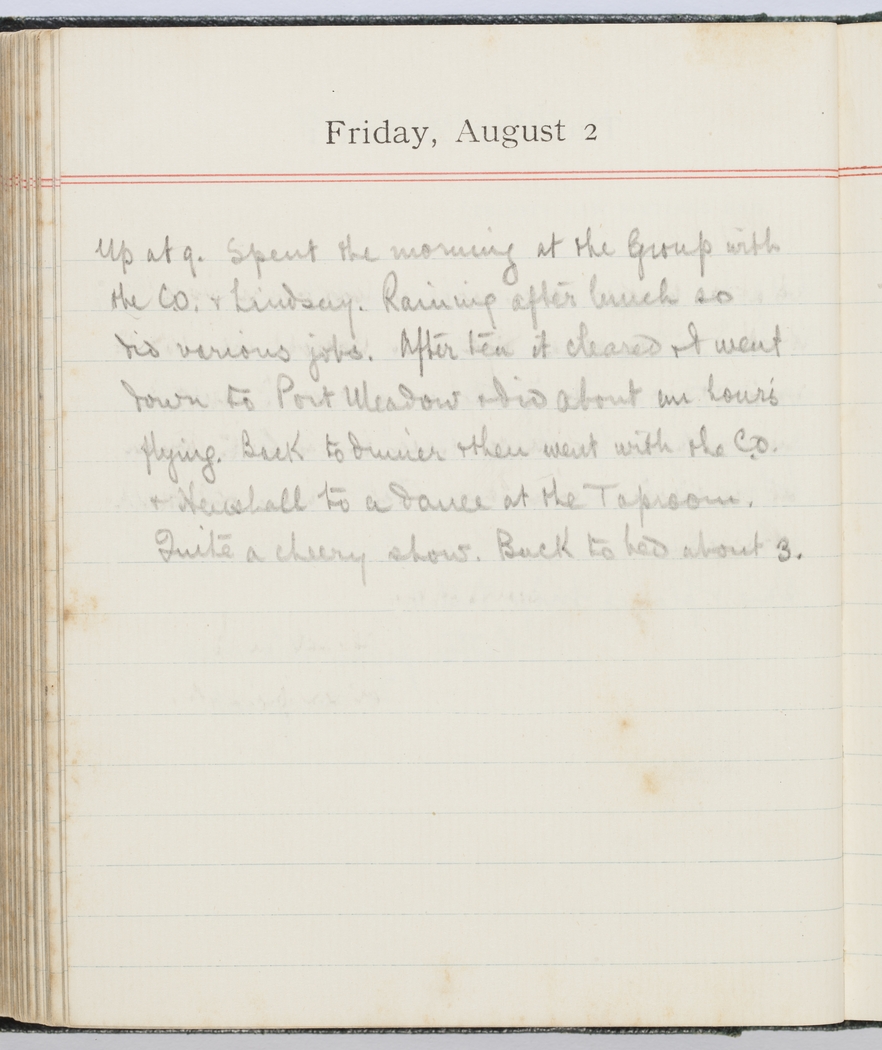 Friday, August 2
Up at 9. Spent the morning at the Group with
the CO. & Lindsay. Raining after lunch so
did various jobs. After tea it cleared & I went
down to Port Meadow & did about an hour's
flying. Back to dinner & then went with the CO.
& to a dance at the Taproom.
Quite a cheery show. Back to bed about 3.